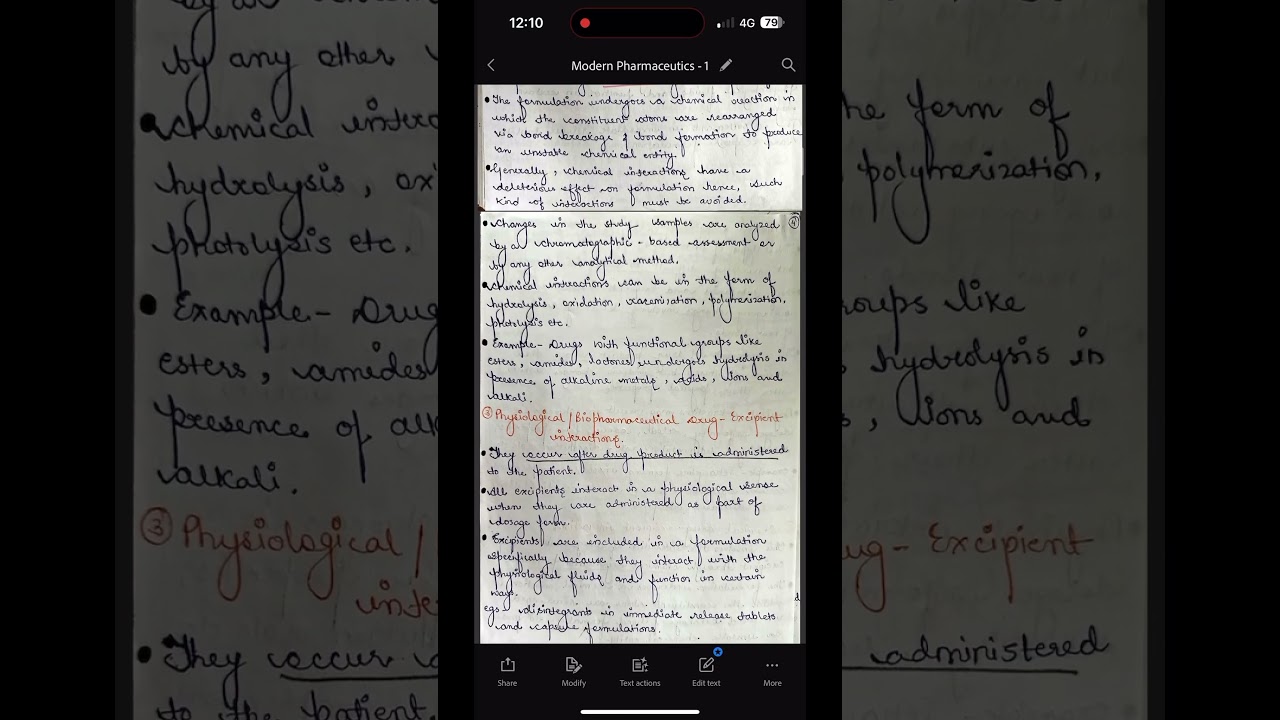 by any other
chemical intera
hydrolysis, ox
photolysis etc.
Example - Drug
esters, amides
presence of alk
alkali.
③ Physiological /
inte
They occur
to the patient.
12:10
4G 79
Modern Pharmaceutics - 1
The formulation undergoes a chemical reaction in
which the constituent atoms are rearranged
via bond breakage & bond formation to produce
an unstable chemical entity.
Generally, chemical interactions have a
deleterious effect on formulation hence, such
kind of interactions must be avoided.
Changes in the study samples are analyzed ④
by a chromatographic - based assessment or
by any other analytical method.
Chemical interactions can be in the form of
hydrolysis, oxidation, racemisation, polymerization,
photolysis etc.
Example - Drugs with functional groups like
esters, amides, lactones undergoes hydrolysis in
presence of alkaline metals, acids, ions and
alkali.
③ Physiological / Biopharmaceutical Drug - Excipient
interactions.
They occur after drug product is administered
to the patient.
All excipients interact in a physiological sense
when they are administered as part of
dosage form.
Excipients are included in a formulation
specifically because they interact with the
physiological fluids and function in certain
ways.
egs disintegrants in immediate release tablets
and capsule formulations.
Share Modify Text actions Edit text More
he form of
polymerization,
roups like
hydrolysis in
s, ions and
ug - Excipient
administered